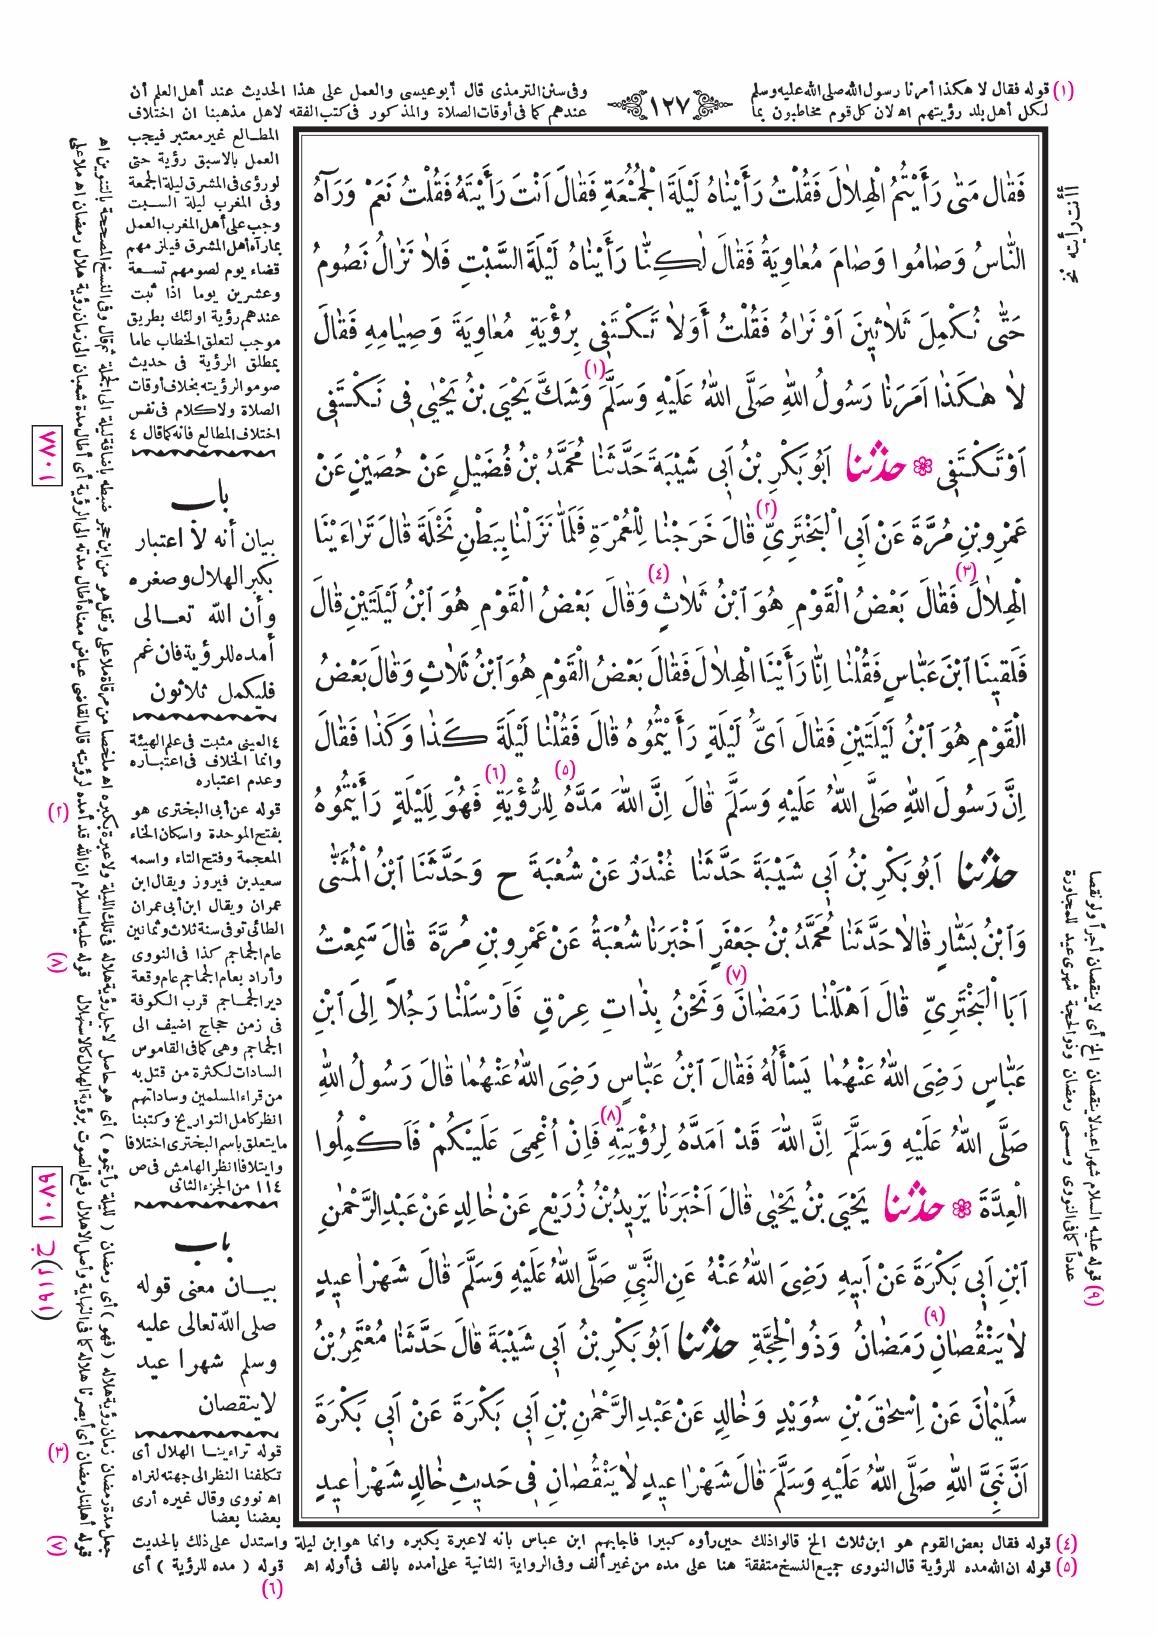 (١) قوله فقال لا هكذا أمرنا رسول الله صلى الله عليه وسلم
لكل أهل بلد رؤيتهم اه لان كل قوم مخاطبون بما
١٢٧
وفى سنن الترمذى قال أبو عيسى والعمل على هذا الحديث عند أهل العلم أن
عندهم كما فى أوقات الصلاة والمذكور فى كتب الفقه لاهل مذهبنا ان اختلاف
المطالع غير معتبر فيجب
العمل بالاسبق رؤية حتى
لو رؤى فى المشرق ليلة الجمعة
وفى المغرب ليلة السبت
وجب على أهل المغرب العمل
بما رآه أهل المشرق فيلزمهم
قضاء يوم لصومهم تسعة
وعشرين يوما اذا ثبت
عندهم رؤية اولئك بطريق
موجب لتعلق الخطاب عاما
بمطلق الرؤية فى حديث
صوموا لرؤيته بخلاف أوقات
الصلاة ولا كلام فى نفس
اختلاف المطالع فانه كما قال ٤
فَقَالَ مَتٰى رَأَيْتُمُ الْهِلَالَ فَقُلْتُ رَأَيْنَاهُ لَيْلَةَ الْجُمُعَةِ فَقَالَ اَنْتَ رَأَيْتَهُ فَقُلْتُ نَعَمْ وَرَآهُ
النَّاسُ وَصَامُوا وَصَامَ مُعَاوِيَةُ فَقَالَ لٰكِنَّا رَأَيْنَاهُ لَيْلَةَ السَّبْتِ فَلَا نَزَالُ نَصُومُ
حَتّٰى نُكْمِلَ ثَلَاثِينَ اَوْ نَرَاهُ فَقُلْتُ أَوَلَا تَكْتَفِى بِرُؤْيَةِ مُعَاوِيَةَ وَصِيَامِهِ فَقَالَ
لَا هٰكَذَا اَمَرَنَا رَسُولُ اللّٰهِ صَلَّى اللّٰهُ عَلَيْهِ وَسَلَّمَ (١) وَشَكَّ يَحْيَى بْنُ يَحْيٰى فِى نَكْتَفِى
اَوْ تَكْتَفِى ❁ حدثنا اَبُو بَكْرِ بْنُ اَبِى شَيْبَةَ حَدَّثَنَا مُحَمَّدُ بْنُ فُضَيْلٍ عَنْ حُصَيْنٍ عَنْ
عَمْرِو بْنِ مُرَّةَ عَنْ اَبِى الْبَخْتَرِىِّ (٢) قَالَ خَرَجْنَا لِلْعُمْرَةِ فَلَمَّا نَزَلْنَا بِبَطْنِ نَخْلَةَ قَالَ تَرَاءَيْنَا
الْهِلَالَ (٣) فَقَالَ بَعْضُ الْقَوْمِ هُوَ ابْنُ ثَلَاثٍ (٤) وَقَالَ بَعْضُ الْقَوْمِ هُوَ ابْنُ لَيْلَتَيْنِ قَالَ
فَلَقِينَا ابْنَ عَبَّاسٍ فَقُلْنَا اِنَّا رَأَيْنَا الْهِلَالَ فَقَالَ بَعْضُ الْقَوْمِ هُوَ ابْنُ ثَلَاثٍ وَقَالَ بَعْضُ
الْقَوْمِ هُوَ ابْنُ لَيْلَتَيْنِ فَقَالَ اَىَّ لَيْلَةٍ رَأَيْتُمُوهُ قَالَ فَقُلْنَا لَيْلَةَ كَذَا وَكَذَا فَقَالَ
اِنَّ رَسُولَ اللّٰهِ صَلَّى اللّٰهُ عَلَيْهِ وَسَلَّمَ قَالَ اِنَّ اللّٰهَ مَدَّهُ (٥) لِلرُّؤْيَةِ (٦) فَهُوَ لِلَيْلَةٍ رَأَيْتُمُوهُ
حدثنا اَبُو بَكْرِ بْنُ اَبِى شَيْبَةَ حَدَّثَنَا غُنْدَرٌ عَنْ شُعْبَةَ ح وَحَدَّثَنَا ابْنُ الْمُثَنّٰى
وَابْنُ بَشَّارٍ قَالَا حَدَّثَنَا مُحَمَّدُ بْنُ جَعْفَرٍ اَخْبَرَنَا شُعْبَةُ عَنْ عَمْرِو بْنِ مُرَّةَ قَالَ سَمِعْتُ
اَبَا الْبَخْتَرِىِّ قَالَ اَهْلَلْنَا رَمَضَانَ (٧) وَنَحْنُ بِذَاتِ عِرْقٍ فَاَرْسَلْنَا رَجُلاً اِلَى ابْنِ
عَبَّاسٍ رَضِىَ اللّٰهُ عَنْهُمَا يَسْأَلُهُ فَقَالَ ابْنُ عَبَّاسٍ رَضِىَ اللّٰهُ عَنْهُمَا قَالَ رَسُولُ اللّٰهِ
صَلَّى اللّٰهُ عَلَيْهِ وَسَلَّمَ اِنَّ اللّٰهَ قَدْ اَمَدَّهُ لِرُؤْيَتِهِ (٨) فَاِنْ اُغْمِىَ عَلَيْكُمْ فَاَكْمِلُوا
الْعِدَّةَ ❁ حدثنا يَحْيَى بْنُ يَحْيٰى قَالَ اَخْبَرَنَا يَزِيدُ بْنُ زُرَيْعٍ عَنْ خَالِدٍ عَنْ عَبْدِ الرَّحْمٰنِ
ابْنِ اَبِى بَكْرَةَ عَنْ اَبِيهِ رَضِىَ اللّٰهُ عَنْهُ عَنِ النَّبِىِّ صَلَّى اللّٰهُ عَلَيْهِ وَسَلَّمَ قَالَ شَهْرَا عِيدٍ
لَا يَنْقُصَانِ (٩) رَمَضَانُ وَذُو الْحِجَّةِ حدثنا اَبُو بَكْرِ بْنُ اَبِى شَيْبَةَ قَالَ حَدَّثَنَا مُعْتَمِرُ بْنُ
سُلَيْمَانَ عَنْ اِسْحٰقَ بْنِ سُوَيْدٍ وَخَالِدٍ عَنْ عَبْدِ الرَّحْمٰنِ بْنِ اَبِى بَكْرَةَ عَنْ اَبِى بَكْرَةَ
اَنَّ نَبِىَّ اللّٰهِ صَلَّى اللّٰهُ عَلَيْهِ وَسَلَّمَ قَالَ شَهْرَا عِيدٍ لَا يَنْقُصَانِ فِى حَدِيثِ خَالِدٍ شَهْرَا عِيدٍ
باب
بيان أنه لا اعتبار
بكبر الهلال وصغره
وأن الله تعالى
أمده للرؤية فان غم
فليكمل ثلاثون
٤ العينى مثبت فى علم الهيئة
وانما الخلاف فى اعتباره
وعدم اعتباره
(٢) قوله عن أبى البخترى هو
بفتح الموحدة واسكان الخاء
المعجمة وفتح التاء واسمه
سعيد بن فيروز ويقال ابن
عمران ويقال ابن أبى عمران
الطائى توفى سنة ثلاث وثمانين
عام الجماجم كذا فى النووى
وأراد بعام الجماجم عام وقعة
دير الجماجم قرب الكوفة
فى زمن حجاج اضيف الى
الجماجم وهى كما فى القاموس
السادات لكثرة من قتل به
من قراء المسلمين وساداتهم
انظر كامل التواريخ وكتبنا
ما يتعلق باسم البخترى اختلافا
وايتلافا انظر الهامش فى ص
١١٤ من الجزء الثانى
باب
بيان معنى قوله
صلى الله تعالى عليه
وسلم شهرا عيد
لا ينقصان
(٣) قوله تراءينا الهلال أى
تكلفنا النظر الى جهته لنراه
اه نووى وقال غيره أرى
بعضنا بعضا
(٤) قوله فقال بعض القوم هو ابن ثلاث الخ قالوا ذلك حين رأوه كبيرا فاجابهم ابن عباس بانه لا عبرة بكبره وانما هو ابن ليلة واستدل على ذلك بالحديث
(٥) قوله ان الله مده للرؤية قال النووى جميع النسخ متفقة هنا على مده من غير ألف وفى الرواية الثانية على أمده بالف فى أوله اه (٦) قوله ( مده للرؤية ) أى
جعل مدة رمضان زمان رؤية هلاله ( فهو ) أى رمضان ( لليلة رأيتموه ) أى هو حاصل لاجل رؤية هلاله فى تلك الليلة ولا عبرة بكبره اه ملخصا من مرقاة ملا على ونقل هو من ابن حجر ضبطه باضافة ليلة الى الجملة ثم قال وفى النسخ المصححة بالتنوين اه
(٧) قوله أهللنا رمضان أى أبصرنا هلاله كما فى النهاية وأصل الاهلال رفع الصوت برؤية الهلال كالاستهلال (٨) قوله عليه السلام ان الله قد أمده لرؤيته قال القاضى عياض معناه أطال مدته الى الرؤية أى أطال مدة شعبان الى زمان رؤية هلال رمضان اه ملا على
(٩) قوله عليه السلام شهرا عيد لا ينقصان الخ أى لا ينقصان أجرا ولو نقصا
عدداً كما فى النووى وسمى رمضان وذو الحجة شهرى عيد للمجاورة